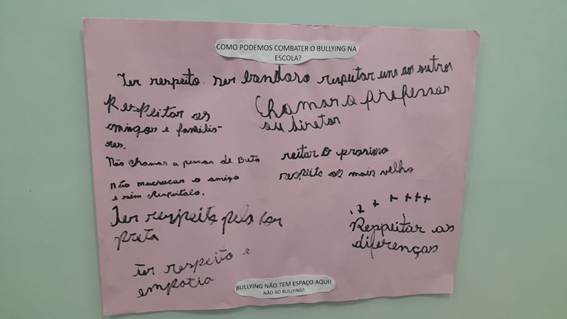 COMO PODEMOS COMBATER O BULLYING NA
ESCOLA?
Ter respeito ser bondoso respeitar uns aos outros
Respeitar os
amigos e familia-
res.
Chamar o professor
ou diretor
Não chamar a pessoa de
não machucar o amigo
e sim
o proximo
respeito os mais velho
Ter respeito pela cor
preta
Respeitar as
diferenças
ter respeito e
empatia
BULLYING NÃO TEM ESPAÇO AQUI!
NÃO AO BULLYING!